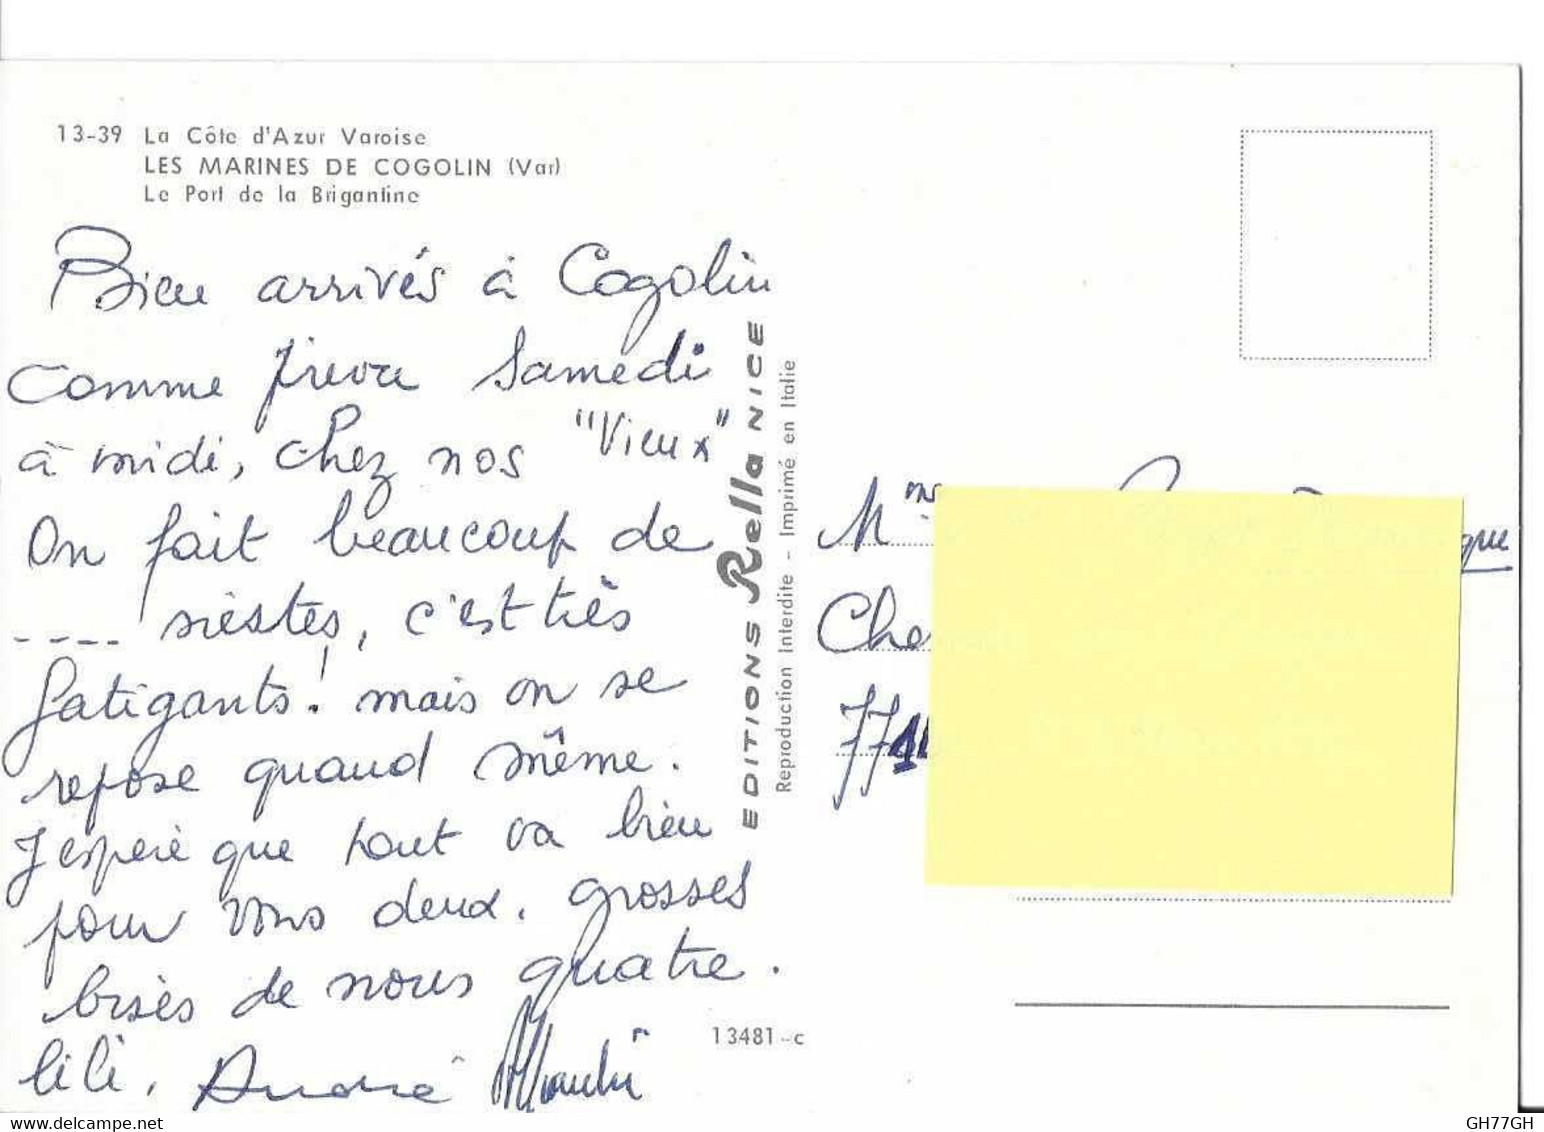 13-39 La Côte d'Azur Varoise
LES MARINES DE COGOLIN (Var)
Le Port de la Brigantine
Bien arrivés à Cogolin
comme prevu Samedi
à midi, chez nos "Vieux"
On fait beaucoup de
---- siestes, c'est très
fatigants! mais on se
repose quand même.
J'espère que tout va bien
pour vous deux. grosses
bises de nous quatre.
lili, André
EDITIONS Rella NICE
Reproduction Interdite - Imprimé en Italie
13481-c
que
Che
77
GH77GH